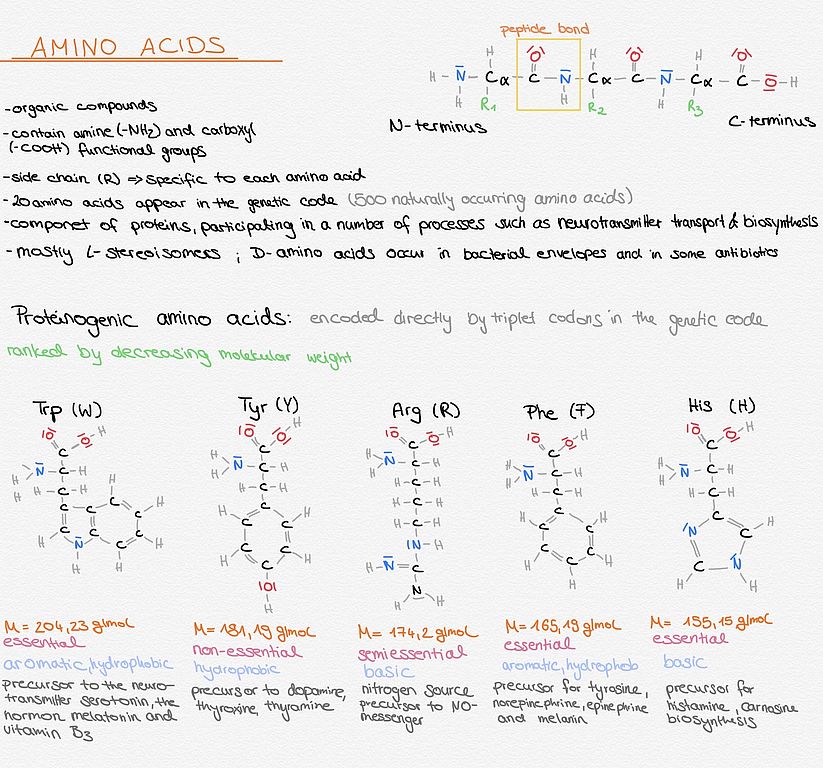 AMINO ACIDS
peptide bond
H - N - Cα - C - N - Cα - C - N - Cα - C - O - H
R1 R2 R3
N-terminus C-terminus
-organic compounds
-contain amine (-NH2) and carboxyl
(-COOH) functional groups
-side chain (R) ⇒ specific to each amino acid
-20 amino acids appear in the genetic code (500 naturally occurring amino acids)
-componet of proteins, participating in a number of processes such as neurotransmitter transport & biosynthesis
-mostly L-stereoisomers ; D-amino acids occur in bacterial envelopes and in some antibiotics
Proteinogenic amino acids: encoded directly by triplet codons in the genetic code
ranked by decreasing molekular weight
Trp (W)
M= 204,23 g/mol
essential
aromatic, hydrophobic
precursor to the neuro-
transmitter serotonin, the
hormon melatonin and
vitamin B3
Tyr (Y)
M= 181,19 g/mol
non-essential
hydrophobic
precursor to dopamine,
thyroxine, thyramine
Arg (R)
M= 174,2 g/mol
semiessential
basic
nitrogen source
precursor to NO-
messenger
Phe (F)
M= 165,19 g/mol
essential
aromatic, hydrophob
precursor for tyrosine,
norepinephrine, epinephrine
and melanin
His (H)
M= 155,15 g/mol
essential
basic
precursor for
histamine, carnosine
biosynthesis